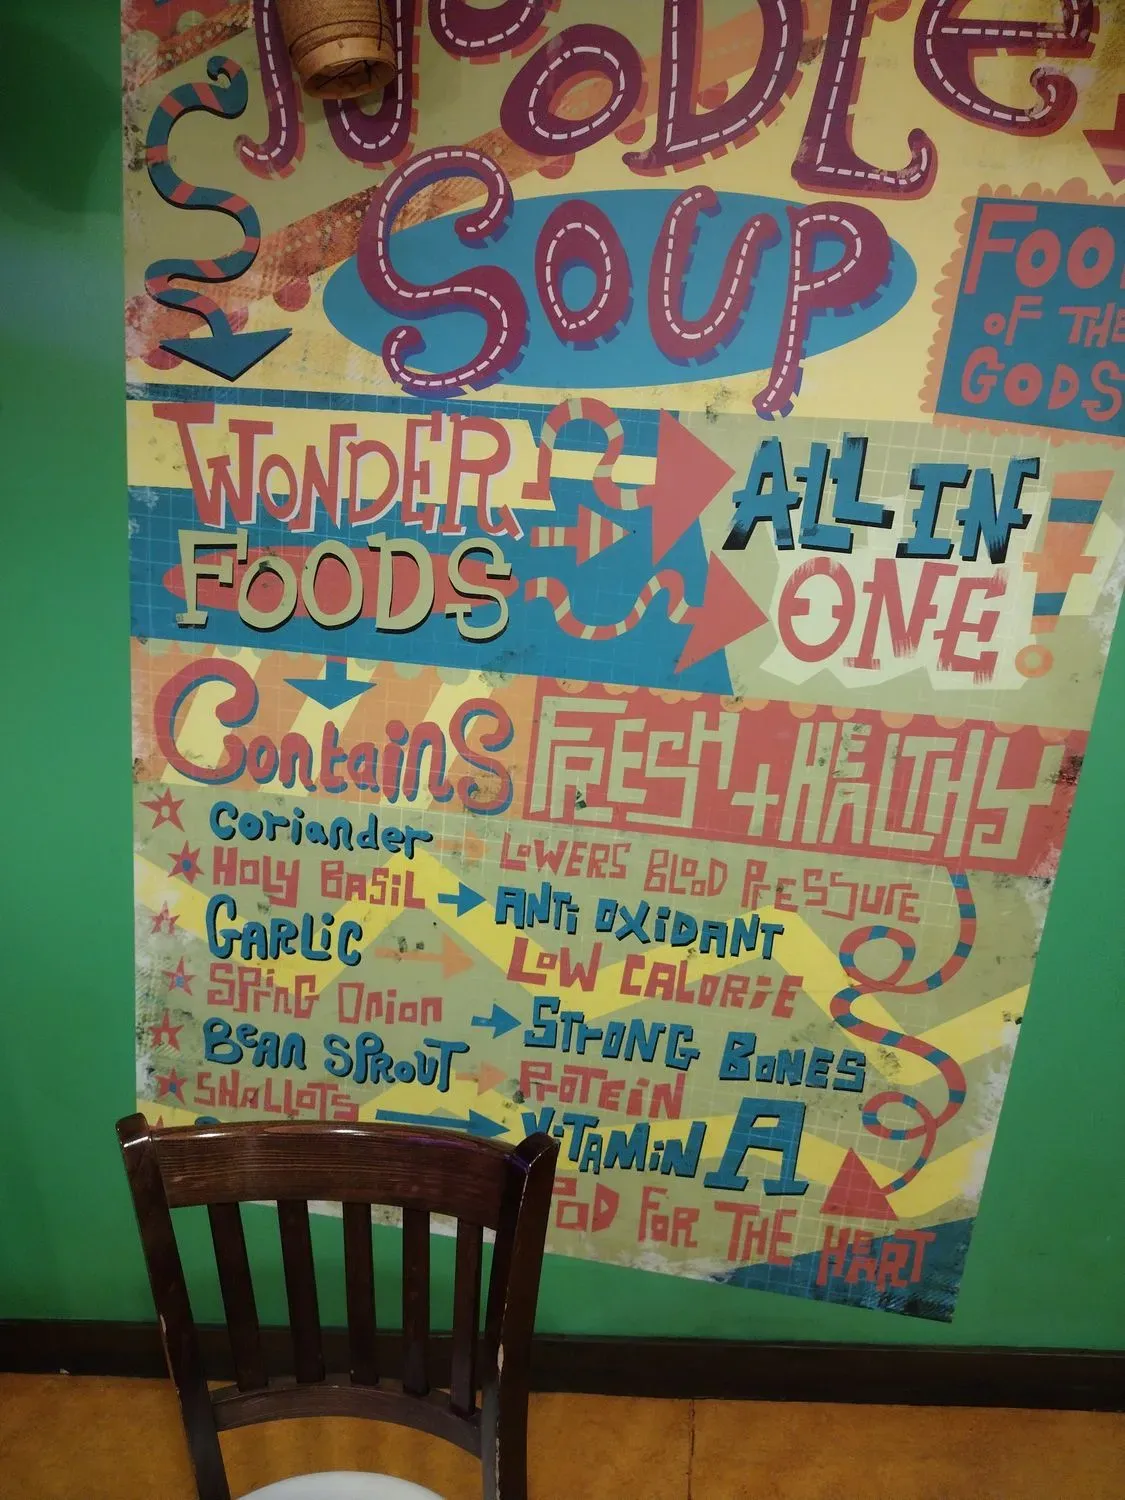 NOODLE
SOUP
FOOD
OF THE
GODS
WONDER
FOODS
ALL IN
ONE!
Contains
FRESH + HEALTHY
Coriander
LOWERS BLOOD PRESSURE
HOLY BASIL
ANTI OXIDANT
GARLIC
LOW CALORIE
SPRING ONION
STRONG BONES
BEAN SPROUT
PROTEIN
SHALLOTS
VITAMIN A
FOR THE HEART